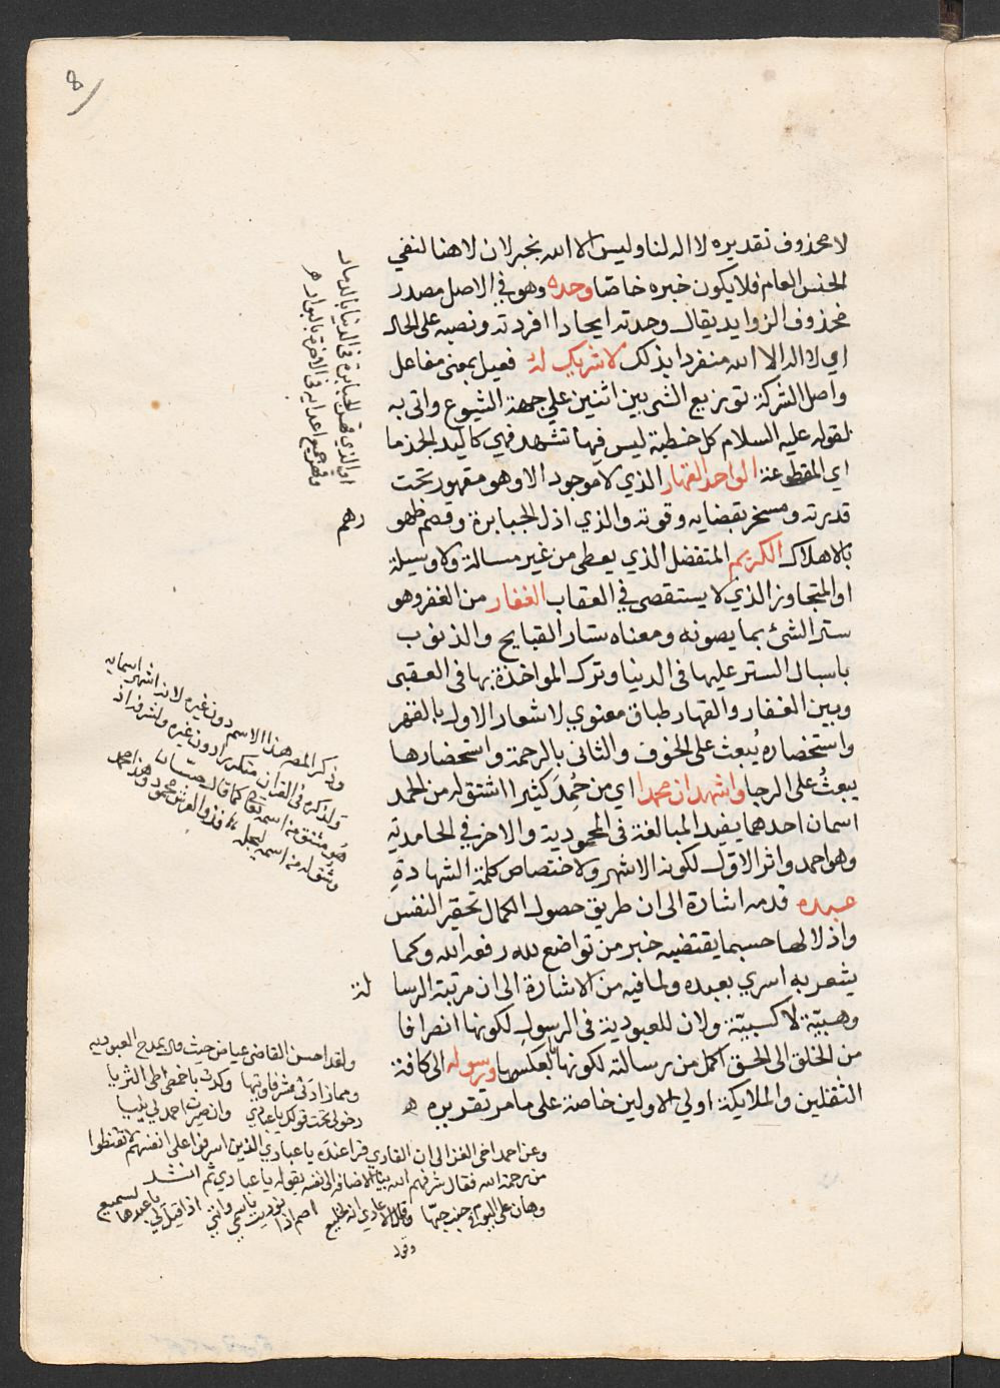 8
لا محذوف تقديره لا اله لنا وليس الا الله بخبر لان لا هنا لنفي
الجنس العام فلا يكون خبره خاصا وحده وهو في الاصل مصدر
محذوف الزوايد يقال وحدته ايحادا افردته ونصبه على الحال
اي لا اله الا الله منفردا بذلك لا شريك له فعيل بمعنى مفاعل
واصل الشركة توزيع الشي بين اثنين علي جهة الشيوع واتى به
لقوله عليه السلام كل خطبة ليس فيها تشهد فهي كاليد الجذما
اي المقطوعة الواحد القهار الذي لا موجود الا وهو مقهور تحت
قدرته ومسخر بقضايه وقوته والذي اذل الجبابرة وقصم ظهو
رهم
بالاهلاك الكريم المتفضل الذي يعطى من غير مسالة ولا وسيلة
او المتجاوز الذي لا يستقصى في العقاب الغفار من الغفر وهو
ستر الشئ بما يصونه ومعناه ستار القبايح والذنوب
باسبال الستر عليها في الدنيا وترك المواخذة بها في العقبى
وبين الغفار والقهار طباق معنوي لاشعار الاول بالقهر
واستحضاره يُبعث على الخوف والثانى بالرحمة واستحضارها
يبعثُ على الرجا واشهد ان محمدا اي من حُمِدَ كثيرا اشتق له من الحمد
اسمان احدهما يفيد المبالغة في المحمودية والاخر في الحامدية
وهو احمد واثر الاول لكونه الاشهر ولاختصاص كلمة الشهادةِ
عبده قدمه اشارة الى ان طريق حصول الكمال تحقير النفس
واذلالها حسبما يقتضيه خبر من تواضع لله رفعه الله وكما
يشعر به اسري بعبده ولما فيه من الاشارة الى ان مرتبة الرسا
لة
وهبيّة لا كسبيّة ولان للعبودية في الرسول لكونها انصرافا
من الخلق الى الحق اكمل من رسالته لكونها بالعكس ورسوله الى كافة
الثقلين والملايكة اولي الاولين خاصة على ما مر تقريره هـ
او الذي قصم الجبابرة في الدنيا بالدمار
وقهر جميع اعدايه في الاخرة بالبوار هـ
وذكر المصـ هذا الاسم دون غيره لانه اشهر اسمايه
ولذكره في القران متكررا دون غيره ولشرفه اذ
هو مشتق من اسمه تعالى كما قال حسان
وشق له من اسمه ليجله فذو العرش محمود وهذا محمد
ولقد احسن القاضي عياض حيث قال يمدح العبوديه
ومما زادني شرفا وتيها وكدت باخمصي اطا الثريا
دخولي تحت قولك يا عبادي وان صيرت احمد لي نبيا
وعن احمد اخى الغزالى ان القاري قرا عنده يا عبادي الذين اسرفوا على انفسهم لا تقنطوا
من رحمة الله فقال شرفهم الله بياء الاضافة الى نفسه بقوله يا عبادي ثم انشد
وهان على اللوم في جنب حبها وقول الاعادي انه لخليع اصم اذا نوديت باسمي وانني اذا قيل لي يا عبدها لسميع
وقوله